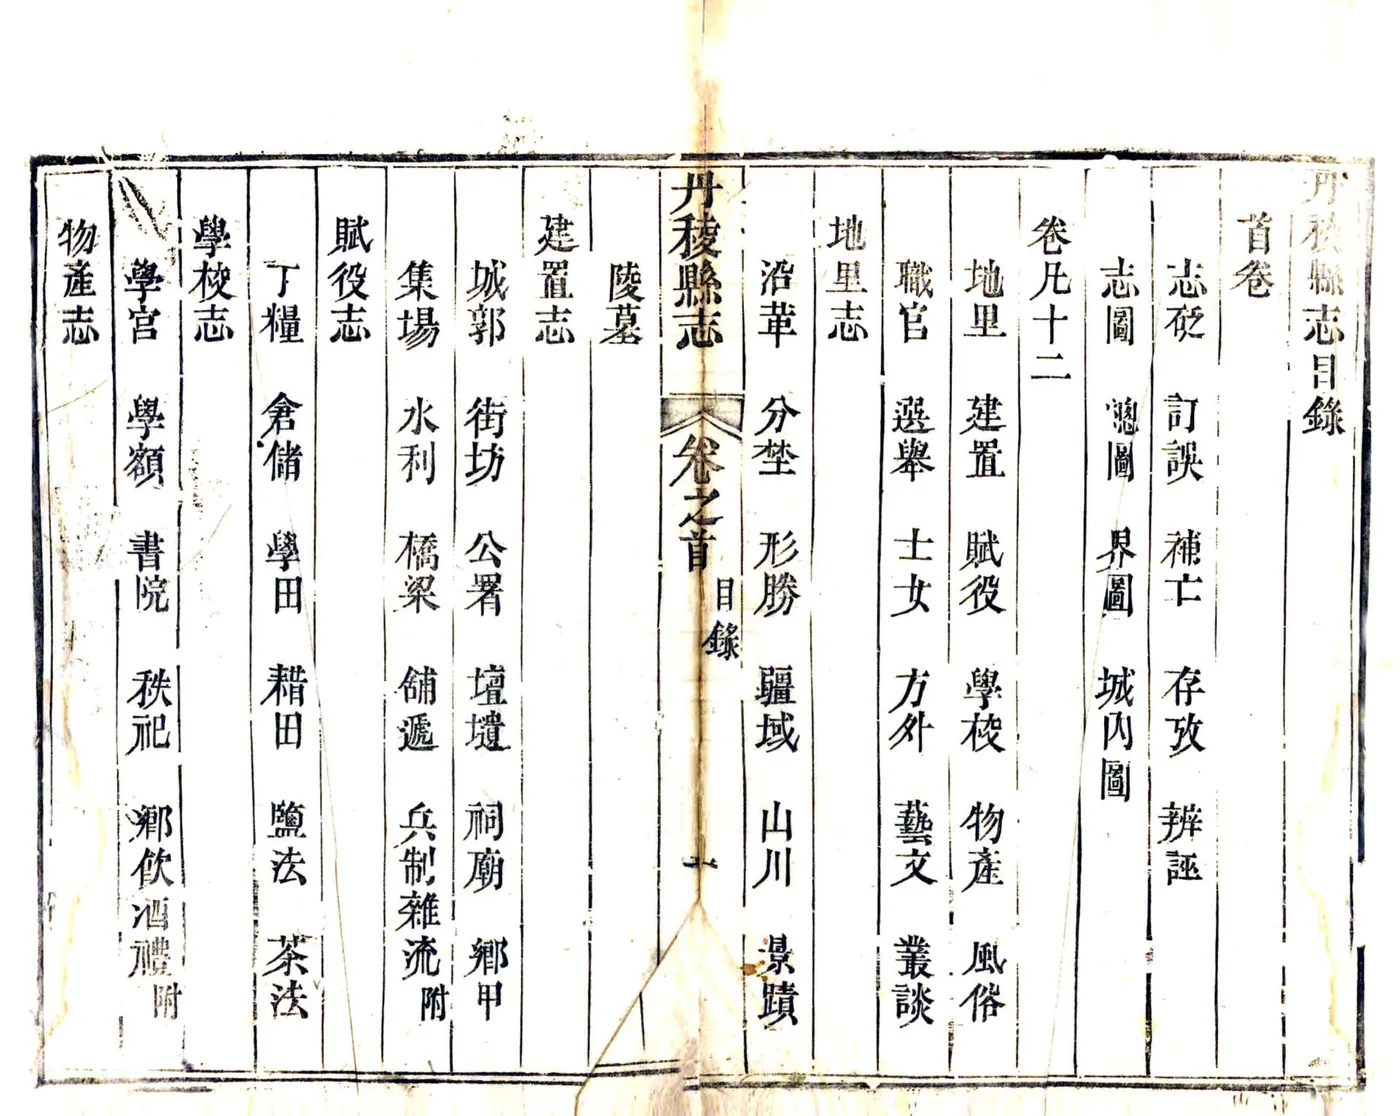 丹稜縣志目錄
首卷
志砭 訂誤 補亡 存攷 辨誣
志圖 總圖 界圖 城內圖
卷凡十二
地里 建置 賦役 學校 物產 風俗
職官 選舉 士女 方外 藝文 叢談
地里志
沿革 分埜 形勝 疆域 山川 景蹟
丹稜縣志 卷之首 目錄 一
陵墓
建置志
城郭 街坊 公署 壇壝 祠廟 鄉甲
集場 水利 橋梁 舖遞 兵制雜流附
賦役志
丁糧 倉儲 學田 耤田 鹽法 茶法
學校志
學宮 學額 書院 秩祀 鄉飲酒禮附
物產志